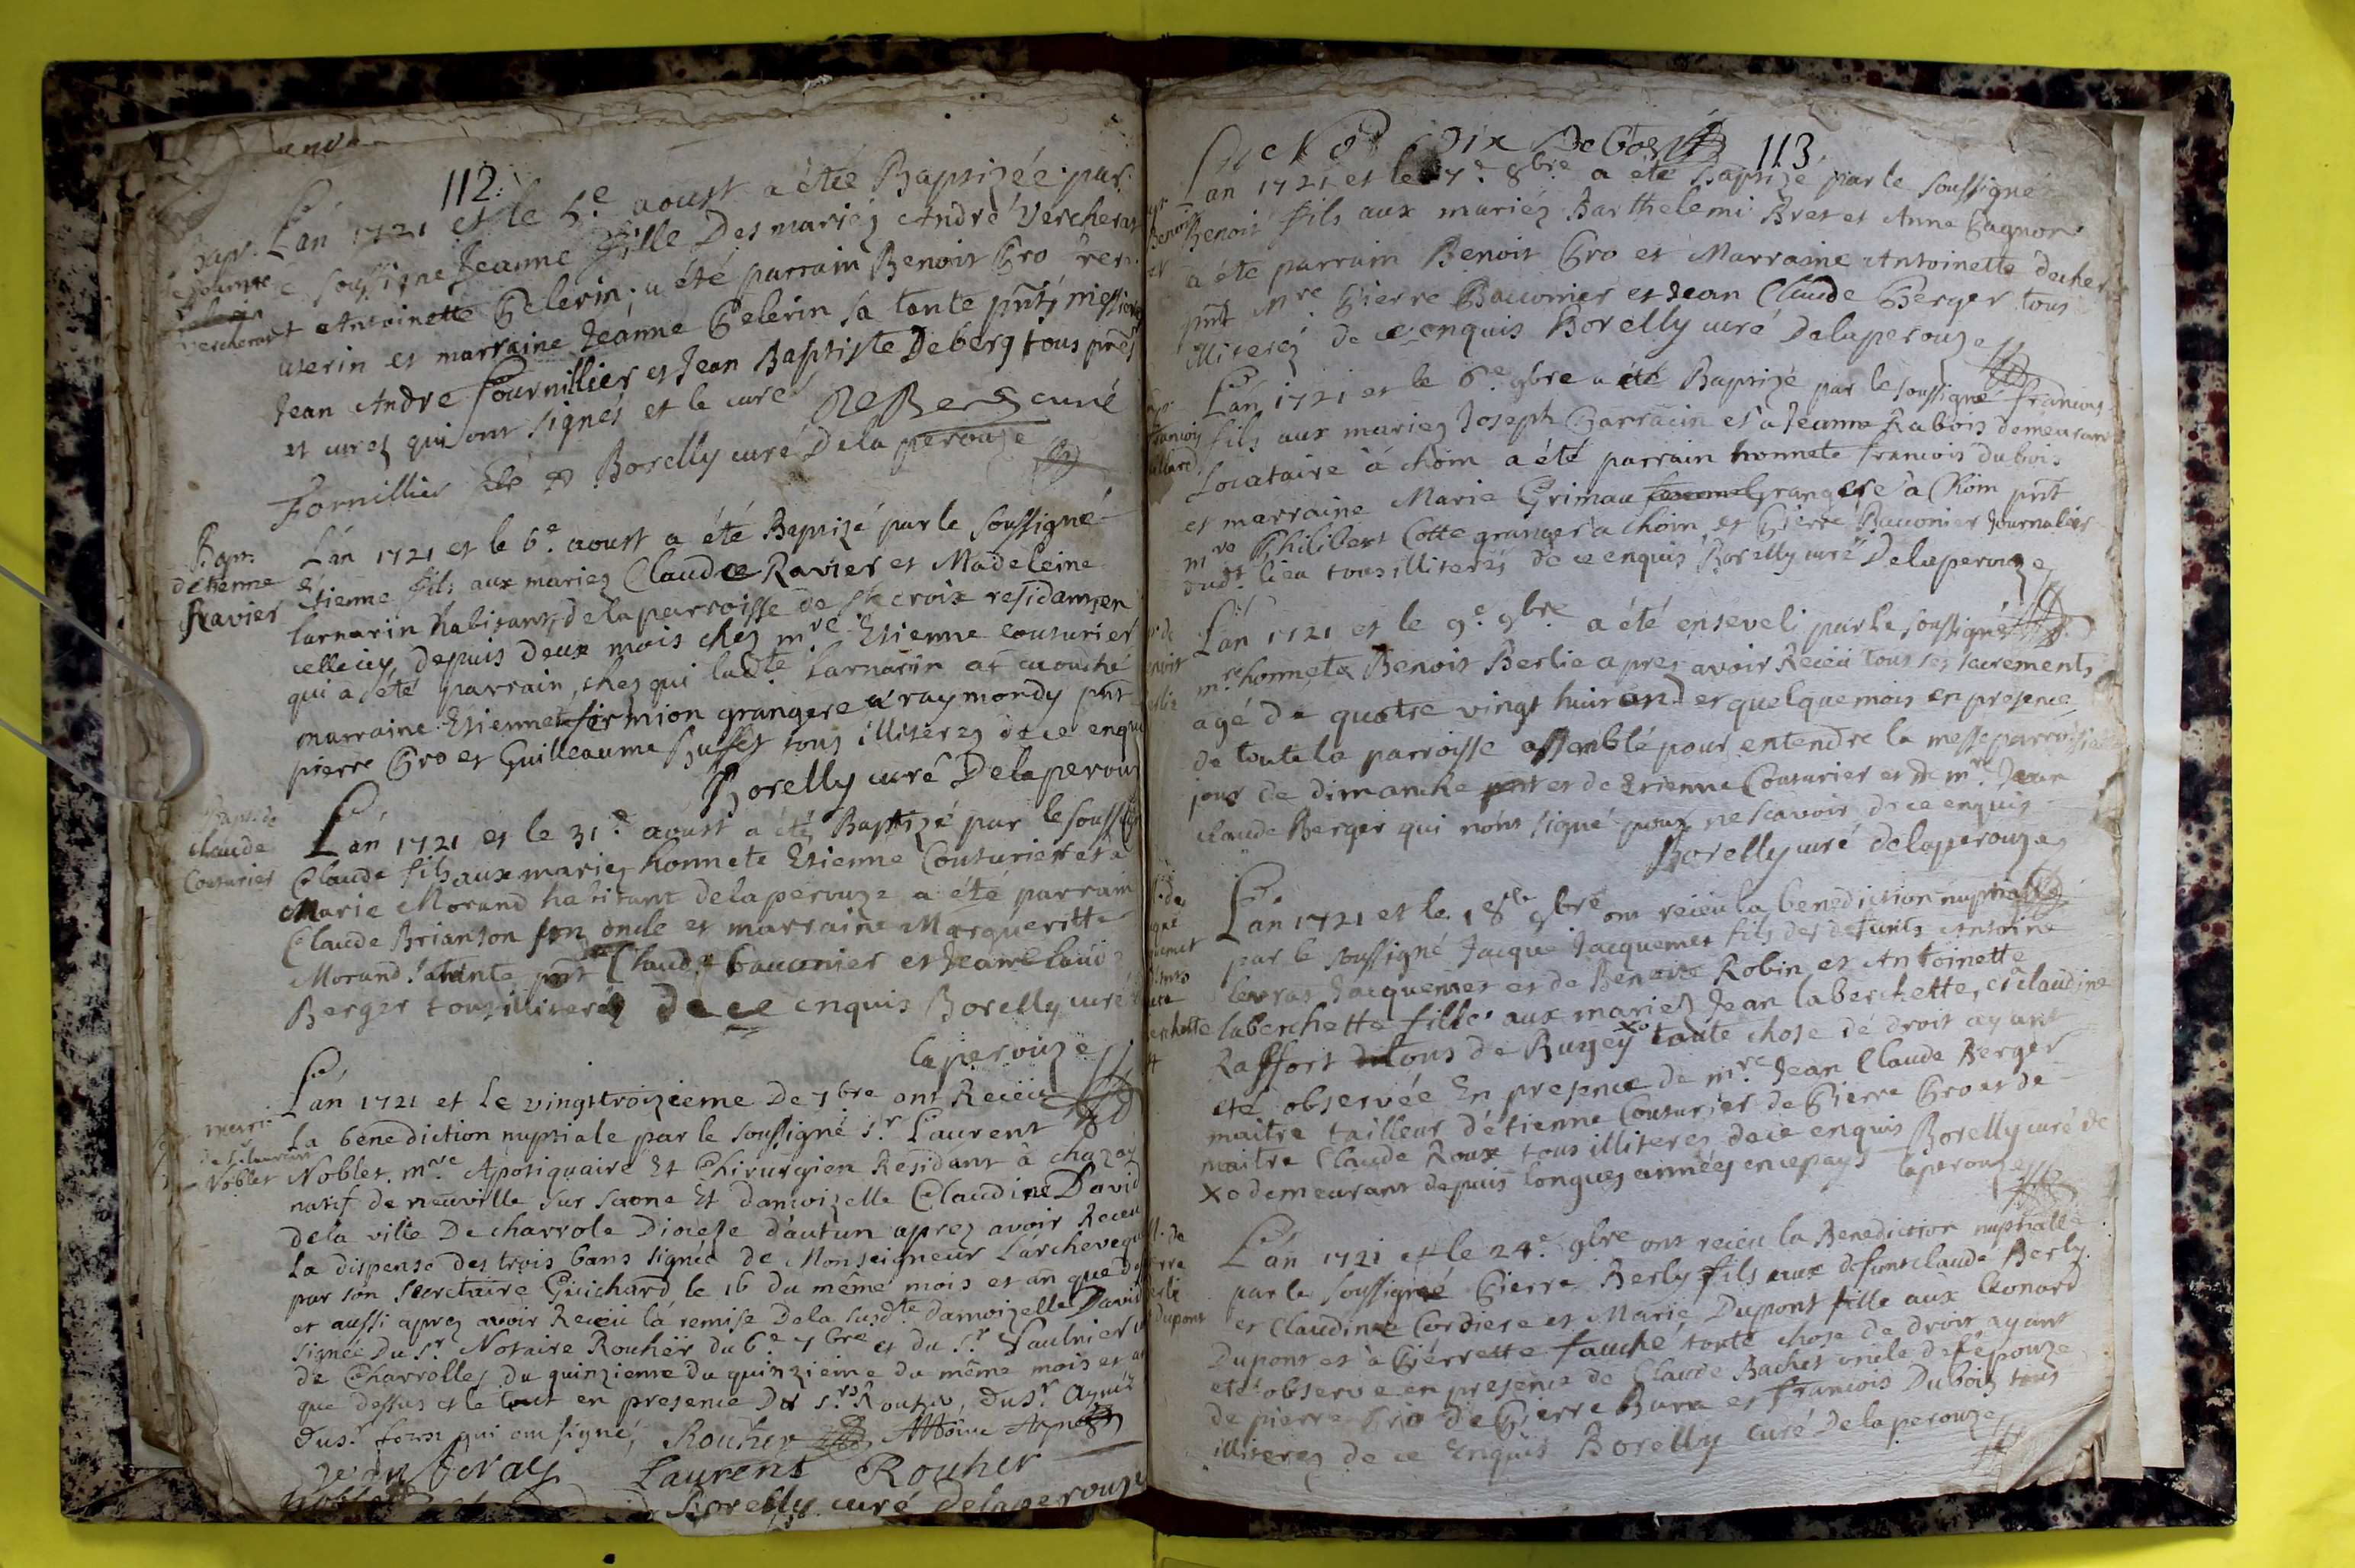 112.
Bapt.
Vercherat
L'an 1721 et le 5.e aoust a étée Baptizée par
le soussigne Jeanne fille Des mariéz André Vercherat
et Antoinette Pelerin; a été parrain Benoit Gro frere
uterin et marraine Jeanne Pelerin sa tante pnts messires
Jean André fournillier et Jean Baptiste Deberg tous pretres
et curez qui ont signés et le curé DeBerg curé
Fornillier Borelly curé Delaperouze
Bapt.
détienne
Ravier
L'an 1721 et le 6.e aoust a été Baptizé par le soussigné
Etienne fils aux mariez Claude Ravier et Madeleine
Larnarin habitants de la parroisse de Ste croix residant en
celle icy depuis deux mois chez mre Etienne couturier
qui a été parrain, chez qui ladte Larnarin at acouché
marraine Etiennete fermion grangere a raymondy pnt
pierre Gro et Guilleaume Buffet tous illiterez de ce enquis
Borelly curé Delaperouze
Bapt. de
claude
Couturier
L'an 1721 et le 31.e aoust a été Baptizé par le soussigné
Claude fils aux mariez honnete Etienne Couturier et a
Marie Morand habitant delaperouze a été parrain
Claude Brianson son oncle et marraine Margueritte
Morand sa tante pnt Claude bauonier et Jean Claude
Berger tous illiteréz De ce enquis Borelly curé
laperouze
mari
de Sr laurent
Noblet
L'an 1721 et le vingt troizieme De 7bre ont Receu
La benediction nuptiale par le soussigné Sr Laurent
Noblet. mre Apotiquaire Et Chirurgien Residant à chazay
natif de neuville sur saone Et damoizelle Claudine David
dela ville De charrole Dioceze d'autun aprez avoir Receu
La dispense des trois bans signée de Monseigneur L'archeveque
par son secretaire Guichard le 16 du même mois et an que de
et aussi aprez avoir Receu la remise Dela susdte damoizelle David
signée Du Sr Notaire Rouhër du 6.e 7bre et du Sr Saulnier
de Charrolles du quinzieme du quinzieme du même mois et an
que dessus et le tout en presence Des Srs Rouher, du Sr
du Sr qui ont signé, Rouher
Laurens Rouher
Noblet
Borelly curé Delaperouze
113.
L'an 1721 et le 7.e 8bre a été baptizé par le soussigné
Benoit fils aux mariez Barthelemi Bret et Anne Gagnon
a été parrain Benoit Gro et Marraine Antoinette decher
pnt mre Pierre Bauonier et Jean Claude Berger tous
illiterez de ce enquis Borelly curé Delaperouze
L'an 1721 et le 6.e 9bre a été Baptizé par le soussigné francois
fils aux mariez Joseph Garracin et a Jeanne Rabois demeurant
Locataire à choin a été parrain honnete francois dubois
et marraine Marie Grimau grangere a Choin pnt
mre Philibert Cotte granger a choin et Pierre Bauonier Journalier
dudt lieu tous illiterés de ce enquis Borelly curé Delaperouze
L'an 1721 et le 9.e 9bre a été enseveli par le soussigné
mre honnete Benoit Berlie apres avoir Receu tous ses sacrements
agé de quatre vingt huit an et quelque mois en presence
de toute la parroisse assemblé pour entendre la messe parroissialle
jour de dimanche pnt et de Etienne Couturier et de mr. Jean
claude Berger qui n'ont signé pour ne scavoir de ce enquis
Borelly curé delaperouze
berchette
L'an 1721 et le 18.e 9bre ont receu la benediction nuptialle
par le soussigné Jacque Jacquemet fils des defunts Antoine
Jacquemet et de Benoite Robin et Antoinette
laberchette fille aux mariez Jean laberchette, et claudine
Raffort tous de Ruyey xo toute chose de droit ayant
eté observée En presence de mre Jean Claude Berger
maitre tailleur d'étienne Couturier de Pierre Gro et de
maitre Claude Roux tous illiteres de ce enquis Borelly curé de
xo demeurant depuis longues années en ce pays laperouze
dupont
L'an 1721 et le 24.e 9bre ont receu la Benediction nuptialle
par le soussigné Pierre Berly fils aux defunt claude Berly
et Claudine Cordiere et Marie Dupont fille aux leonard
Dupont et à Pierrette fauché toute chose de droit ayant
eté observée en presence de Claude Bachet oncle de l'épouze
de pierre Gro de Pierre Burn et francois Dubois tous
illiterez de ce Enquis Borelly curé Delaperouze